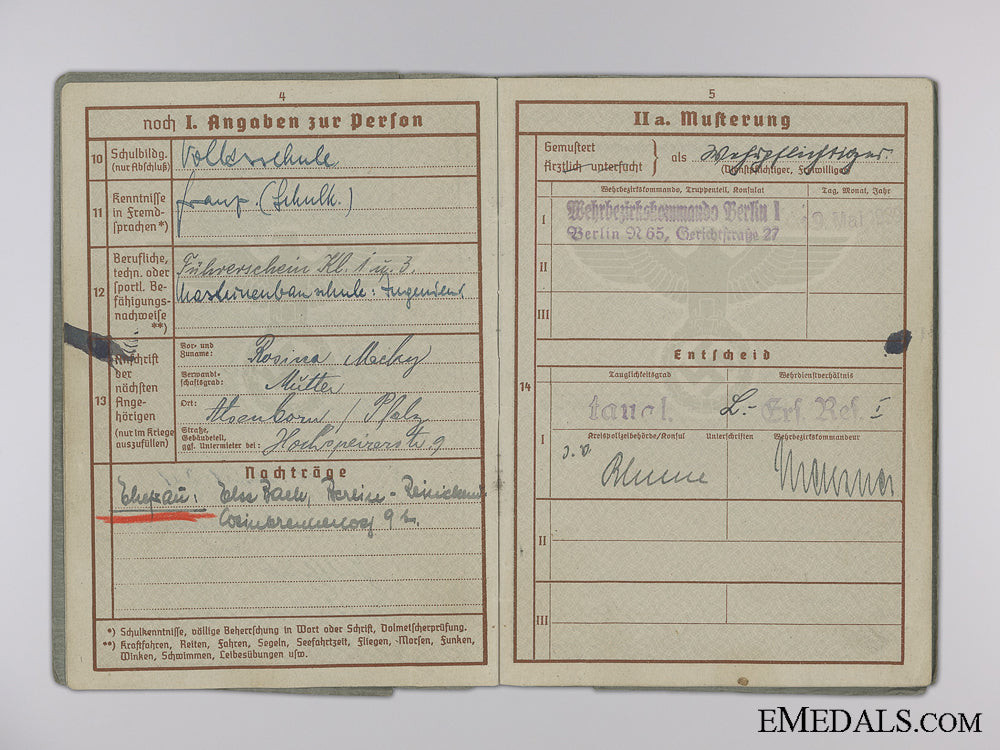 4
noch I. Angaben zur Person
10 Schulbildg. (nur Abschluß)
Volksschule
11 Kenntnisse in Fremd-
sprachen *)
franz. (Schulk.)
12 Berufliche,
techn. oder
sportl. Be-
fähigungs-
nachweise
**)
Führerschein Kl. 1 u. 3.
Maschinenbauschule: Ingenieur
13 Anschrift
der
nächsten
Ange-
hörigen
(nur im Kriege
auszufüllen)
Vor- und
Zuname:
Rosina
Verwandt-
schaftsgrad:
Mutter
Ort:
Alsenborn / Pfalz
Straße,
Gebäudeteil,
ggf. Untermieter bei:
Hochspeirerstr. 9
Nachträge
Ehefrau: Else Bach, Berlin-
*) Schulkenntnisse, völlige Beherrschung in Wort oder Schrift, Dolmetscherprüfung.
**) Kraftfahren, Reiten, Fahren, Segeln, Seefahrtzeit, Fliegen, Morsen, Funken,
Winken, Schwimmen, Leibesübungen usw.
5
II a. Musterung
Gemustert
Ärztlich untersucht
als Wehrpflichtiger.
(Dienstpflichtiger, Freiwilliger)
Wehrbezirkskommando, Truppenteil, Konsulat
Tag, Monat, Jahr
I
Wehrbezirkskommando Berlin I
Berlin N 65, Gerichtstraße 27
II
III
Entscheid
14
Tauglichkeitsgrad
Wehrdienstverhältnis
I
taugl.
L.- Ers. Res. I
Kreispolizeibehörde/Konsul
Unterschriften
Wehrbezirkskommandeur
Blume
II
III
EMEDALS.COM